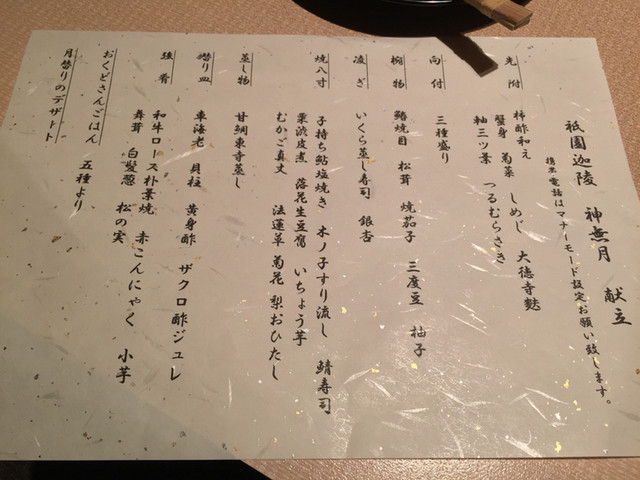 祇園迦陵 神無月 献立
携帯電話はマナーモード設定お願い致します。
先附
柿酢和え しめじ 大徳寺麩
蟹身 菊菜 つるむらさき
軸三ツ葉
向付
三種盛り
椀物
鱧焼目 松茸 焼茄子 三度豆 柚子
凌ぎ
いくら蒸し寿司 銀杏
焼八寸
子持ち鮎塩焼き 木ノ子すり流し 鯖寿司
栗渋皮煮 落花生豆腐 いちょう芋
むかご真丈 法蓮草 菊花 梨おひたし
蒸し物
甘鯛東寺蒸し
替り皿
車海老 貝柱 黄身酢 ザクロ酢ジュレ
強肴
和牛ロース朴葉焼 赤こんにゃく 小芋
舞茸 白髪葱 松の実
おくどさんごはん 五種より
月替りのデザート